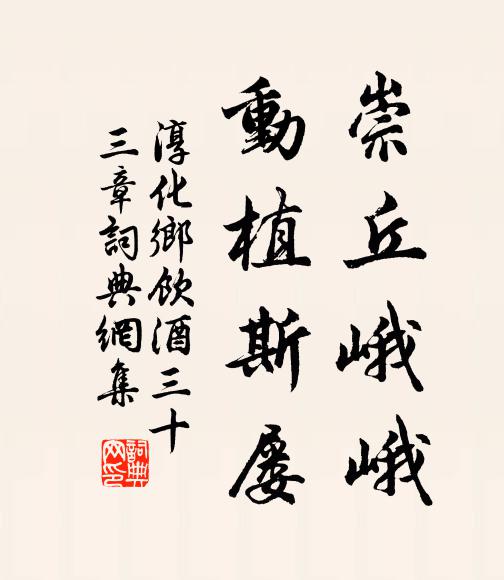 崇丘峨峨
動植斯屡
淳化鄉飲酒三十
三章詞典網集
詞典網印